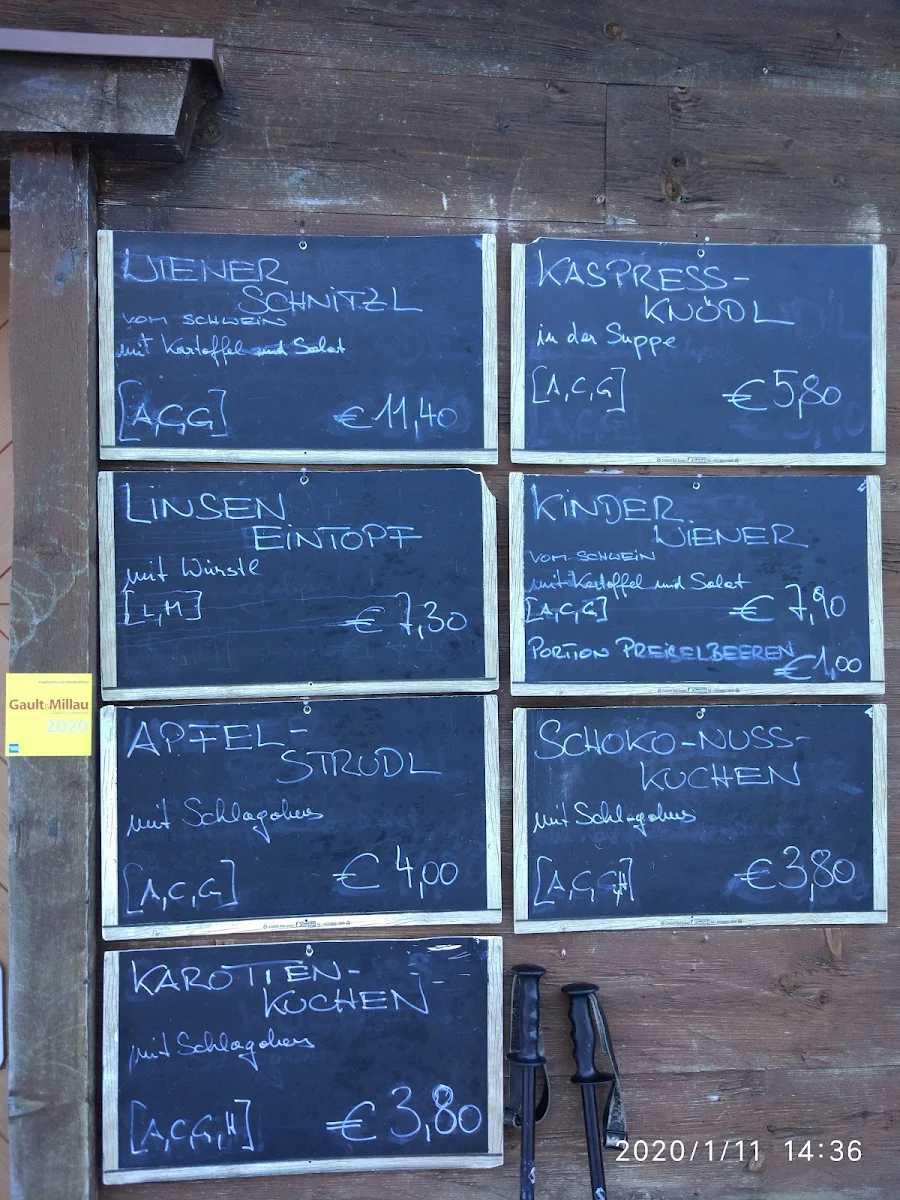 WIENER
SCHNITZL
VOM SCHWEIN
mit Kartoffel und Salat
[A,C,G]
€ 11,40
KASPRESS-
KNÖDL
in der Suppe
[A,C,G]
€ 5,80
LINSEN
EINTOPF
mit Würstl
[L,M]
€ 7,30
KINDER
WIENER
VOM SCHWEIN
mit Kartoffel und Salat
[A,C,G]
€ 7,90
PORTION PREIßELBEEREN
€ 1,00
Gault&Millau
2020
APFEL-
STRUDL
mit Schlagobers
[A,C,G]
€ 4,00
SCHOKO-NUSS-
KUCHEN
mit Schlagobers
[A,C,G,H]
€ 3,80
KAROTTEN-
KUCHEN
mit Schlagobers
[A,C,G,H]
€ 3,80
2020/1/11 14:36